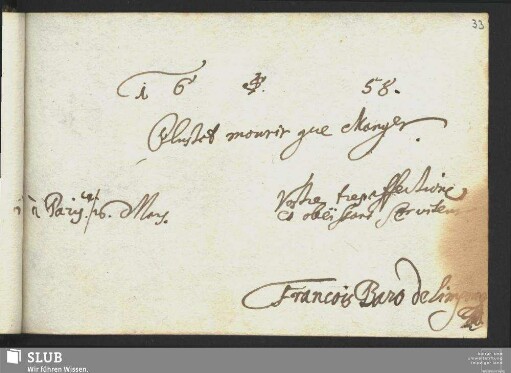 33
16 58.
Plustot mourir que Changer.
à Paris ce 16. Mars.
Vostre trepaffectionné
& obeissant serviteur
Francois Baro de
SLUB
Wir führen Wissen.